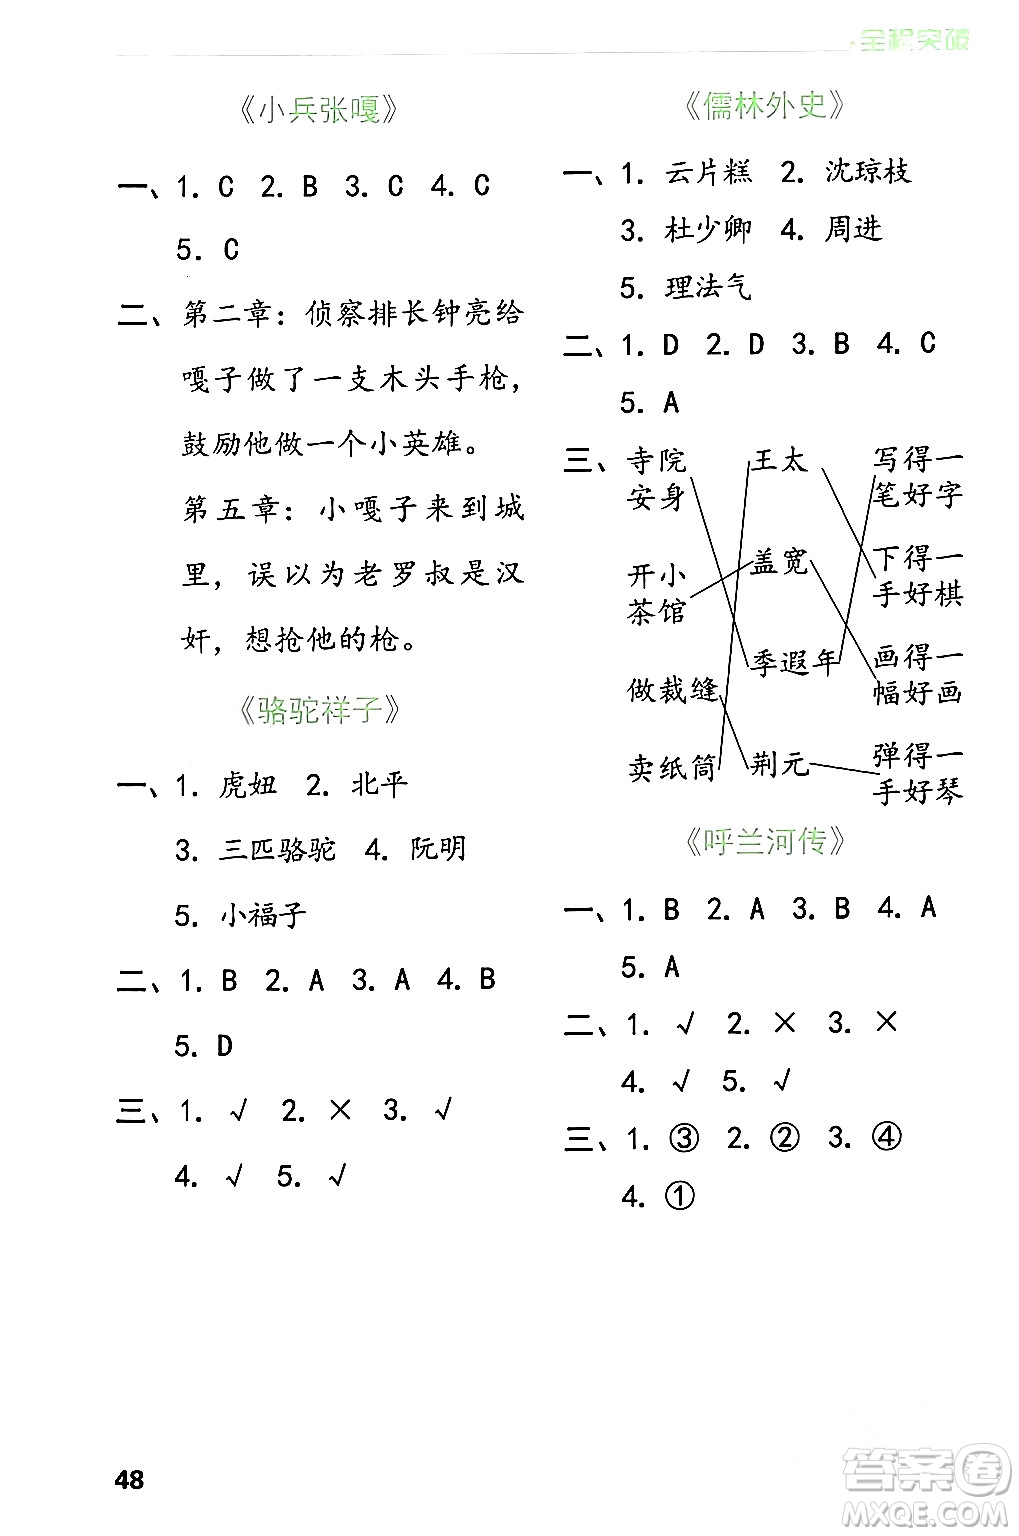 全程突破
《小兵张嘎》
一、1. C 2. B 3. C 4. C
5. C
二、第二章：侦察排长钟亮给
嘎子做了一支木头手枪，
鼓励他做一个小英雄。
第五章：小嘎子来到城
里，误以为老罗叔是汉
奸，想抢他的枪。
《骆驼祥子》
一、1. 虎妞 2. 北平
3. 三匹骆驼 4. 阮明
5. 小福子
二、1. B 2. A 3. A 4. B
5. D
三、1. √ 2. × 3. √
4. √ 5. √
《儒林外史》
一、1. 云片糕 2. 沈琼枝
3. 杜少卿 4. 周进
5. 理法气
二、1. D 2. D 3. B 4. C
5. A
三、寺院 王太 写得一
安身 笔好字
开小 盖宽 下得一
茶馆 手好棋
做裁缝 季遐年 画得一
幅好画
卖纸筒 荆元 弹得一
手好琴
《呼兰河传》
一、1. B 2. A 3. B 4. A
5. A
二、1. √ 2. × 3. ×
4. √ 5. √
三、1. ③ 2. ② 3. ④
4. ①
48
答案圈
MXQE.COM